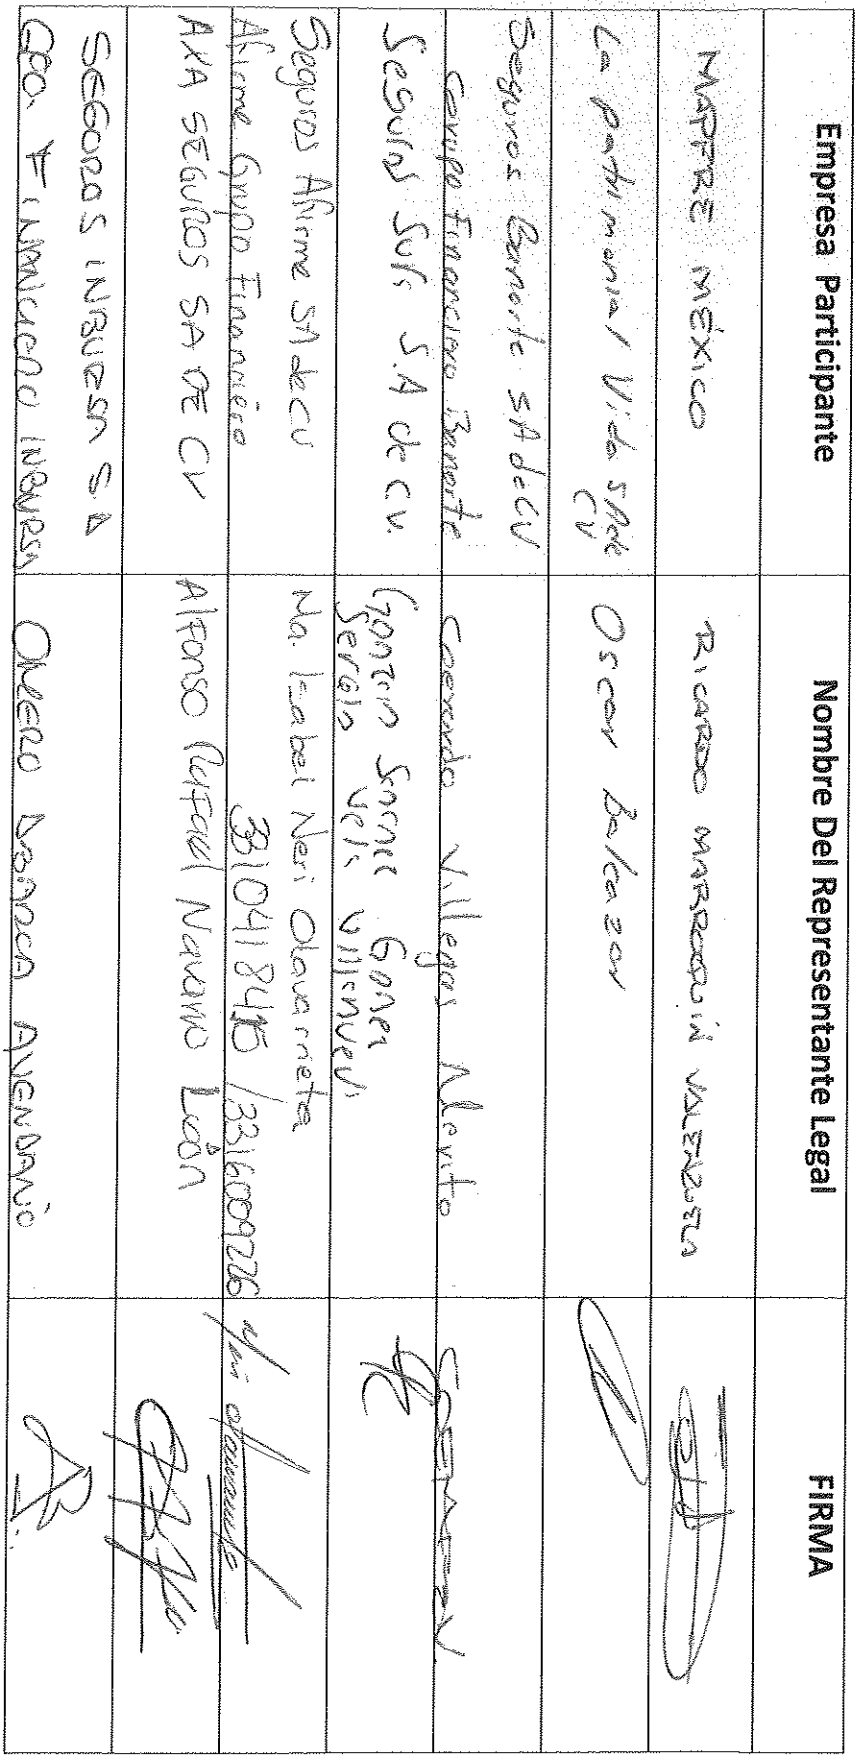 Empresa Participante
Nombre Del Representante Legal
FIRMA
MAPFRE MÉXICO
RICARDO MARROQUÍN VALENZUELA
La patrimonial Vida SA de
CV
Oscar Balcazar
Seguros Banorte SA de CV
Grupo Financiero Banorte
Villegas
Seguros Sura S.A de C.V.
Gomez
Sergio Vela Villanueva
Seguros Afirme SA de CV
Afirme Grupo Financiero
Ma. Isabel Neri Olavarrieta
3310418415 / 3316009226
Neri Olavarrieta
AXA SEGUROS SA DE CV
Alfonso Rafael Navarro León
SEGUROS INBURSA S.A
GPO. FINANCIERO INBURSA
OMERO ABARCA AVENDAÑO